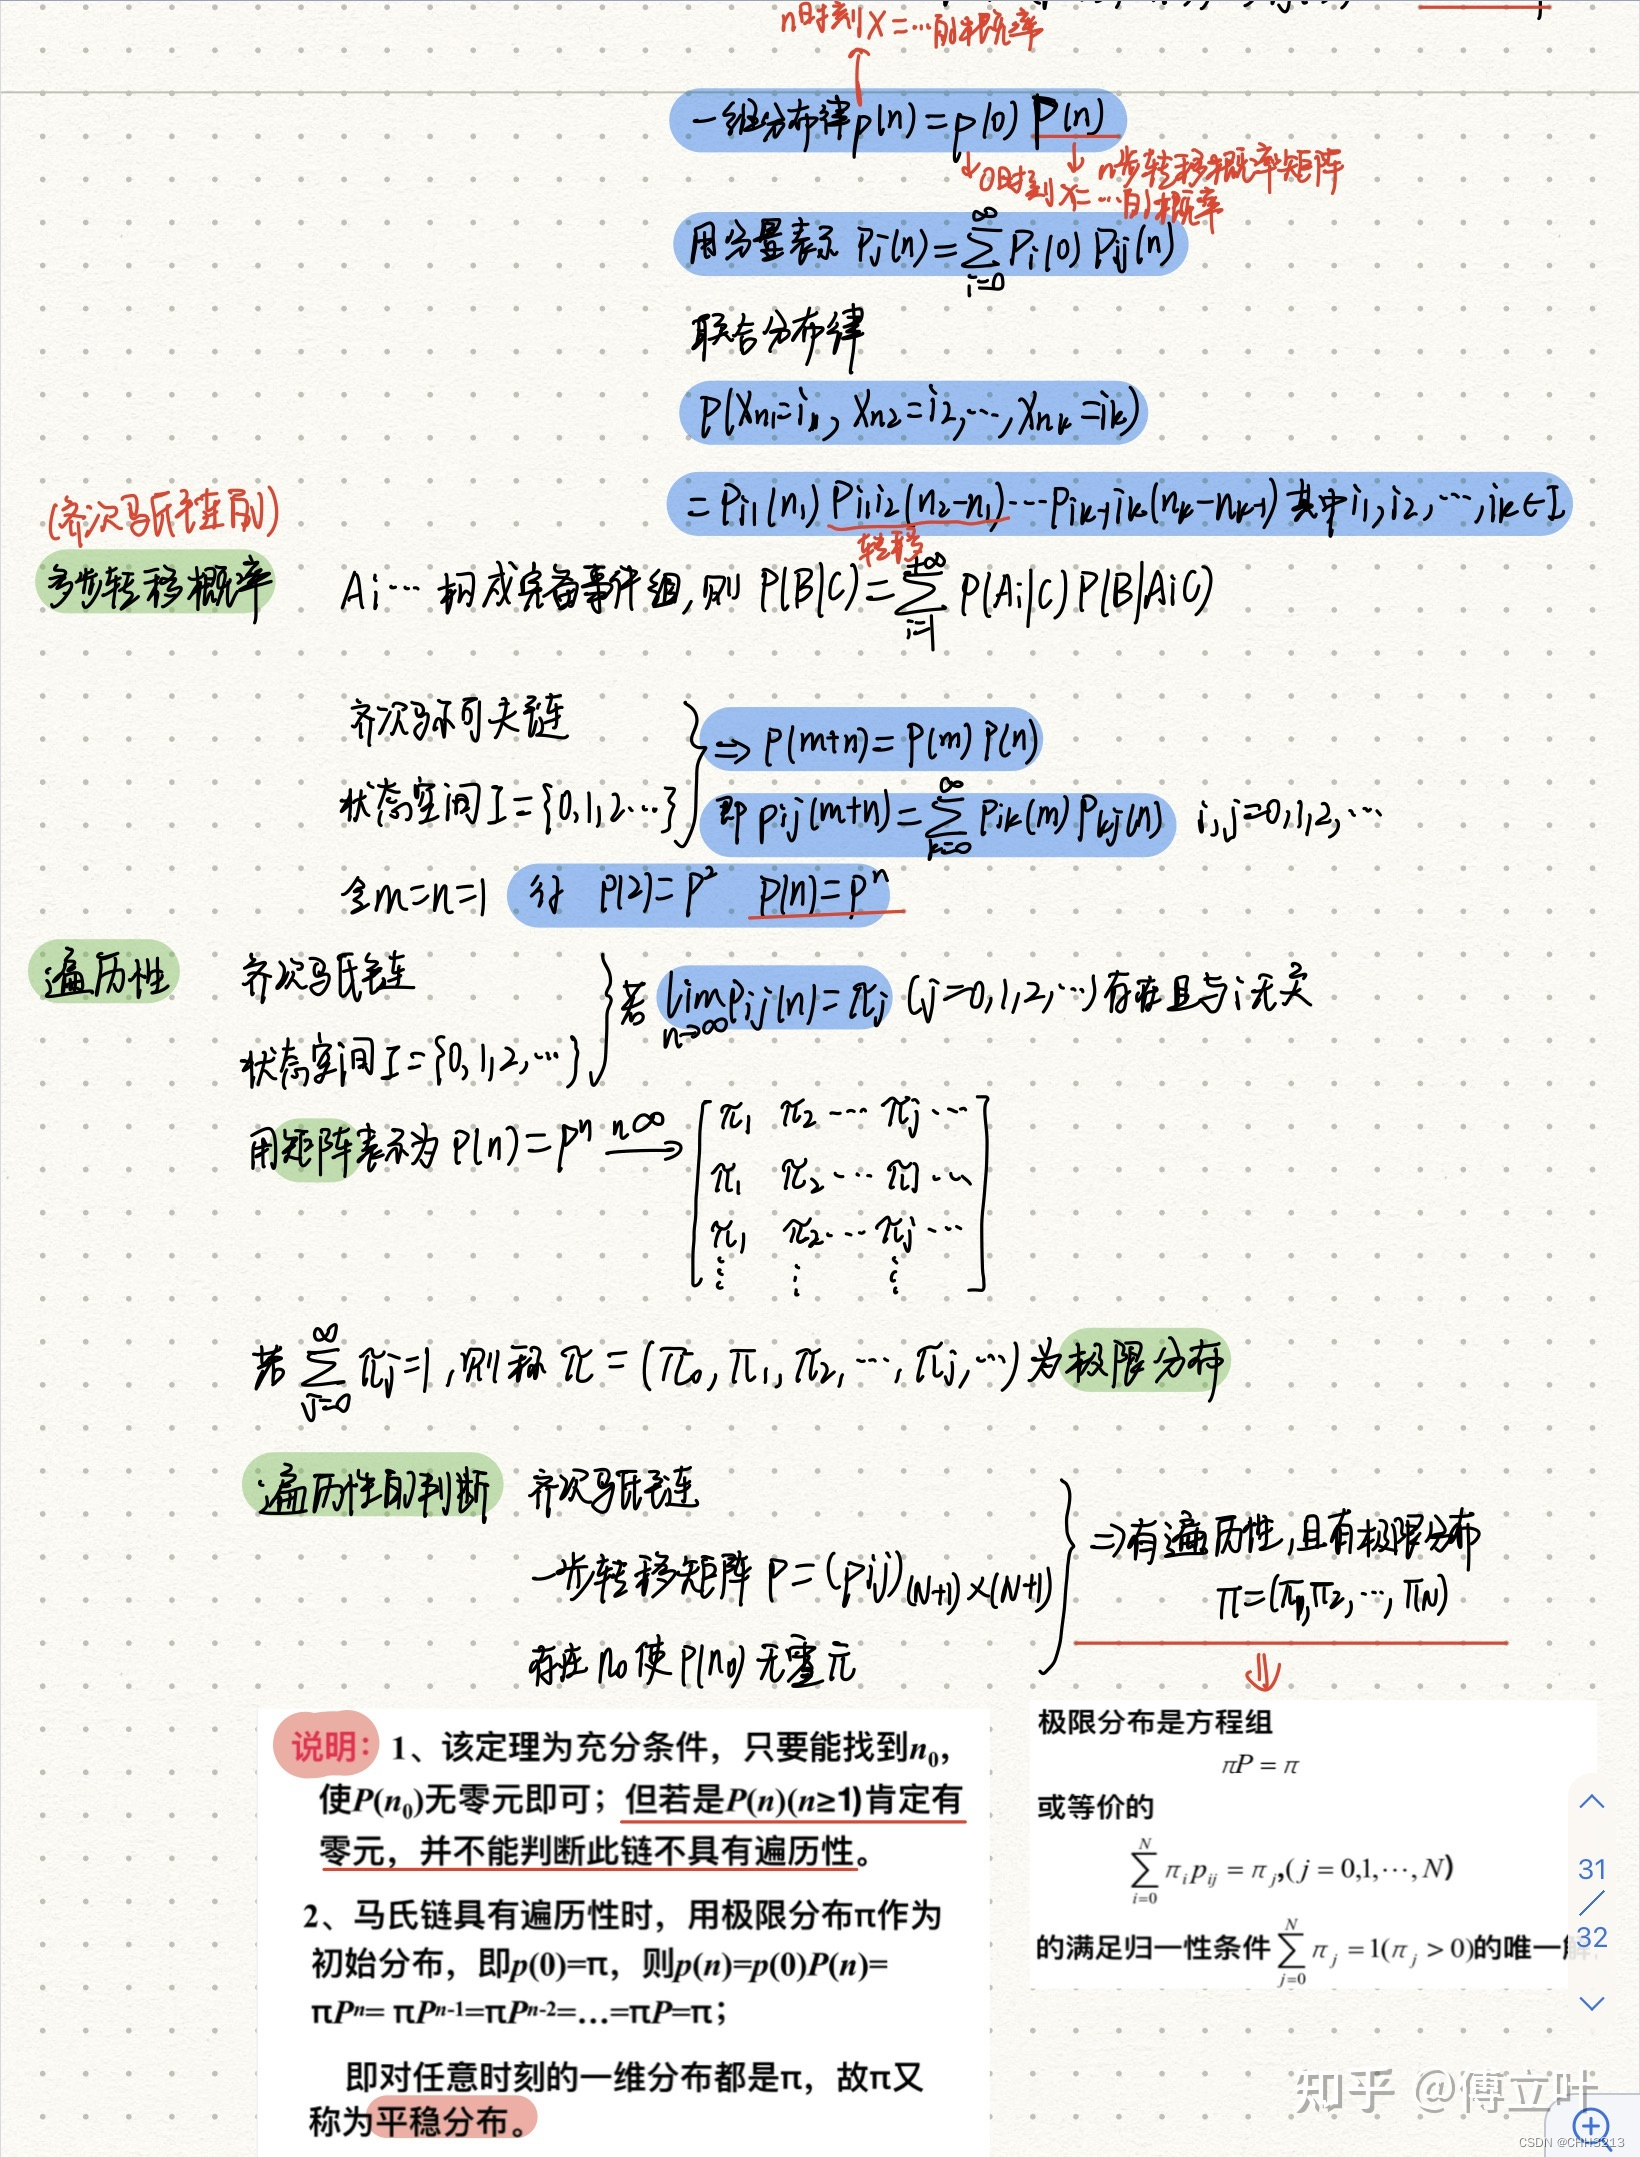 n时刻X=…的概率
一维分布律p(n)=p(0)P(n)
n步转移概率矩阵
0时刻X=…的概率
用分量表示 Pj(n)=∑_{i=0}^{∞}Pi(0)Pij(n)
联合分布律
P(Xn1=i1, Xn2=i2,…,Xnk=ik)
=Pi1(n1)Pi1i2(n2-n1)…Pik-1ik(nk-nk-1) 其中i1,i2,…,ik∈I
转移
(齐次马氏链的)
多步转移概率 Ai… 构成完备事件组,则 P(B|C)=∑_{i=1}^{+∞}P(Ai|C)P(B|AiC)
齐次马尔可夫链
⇒ P(m+n)=P(m)P(n)
状态空间I={0,1,2…}
即 Pij(m+n)=∑_{k=0}^{∞}Pik(m)Pkj(n) i,j=0,1,2,…
令m=n=1 得 P(2)=P² P(n)=Pⁿ
遍历性 齐次马氏链
若 lim_{n→∞}Pij(n)=πj (j=0,1,2,…)存在且与i无关
状态空间I={0,1,2,…}
用矩阵表示为 P(n)=Pⁿ n∞→
π1 π2 … πj …
π1 π2 … πj …
π1 π2 … πj …
⋮ ⋮ ⋮
若 ∑_{j=0}^{∞}πj=1,则称π=(π0,π1,π2,…,πj,…)为极限分布
遍历性的判断 齐次马氏链
一步转移矩阵 P=(pij)(N+1)×(N+1)
存在n0使P(n0)无零元
⇒有遍历性,且有极限分布
π=(π1,π2,…,πN)
说明：1、该定理为充分条件，只要能找到n₀，
使P(n₀)无零元即可；但若是P(n)(n≥1)肯定有
零元，并不能判断此链不具有遍历性。
2、马氏链具有遍历性时，用极限分布π作为
初始分布，即p(0)=π，则p(n)=p(0)P(n)=
πPⁿ= πPⁿ⁻¹=πPⁿ⁻²=…=πP=π；
即对任意时刻的一维分布都是π，故π又
称为平稳分布。
极限分布是方程组
πP = π
或等价的
∑_{i=0}^{N} πᵢpᵢⱼ = πⱼ,( j = 0,1,⋯, N)
的满足归一性条件∑_{j=0}^{N} πⱼ = 1(πⱼ > 0)的唯一解
31
/
32
知乎 @傅立叶
CSDN @CHH3213